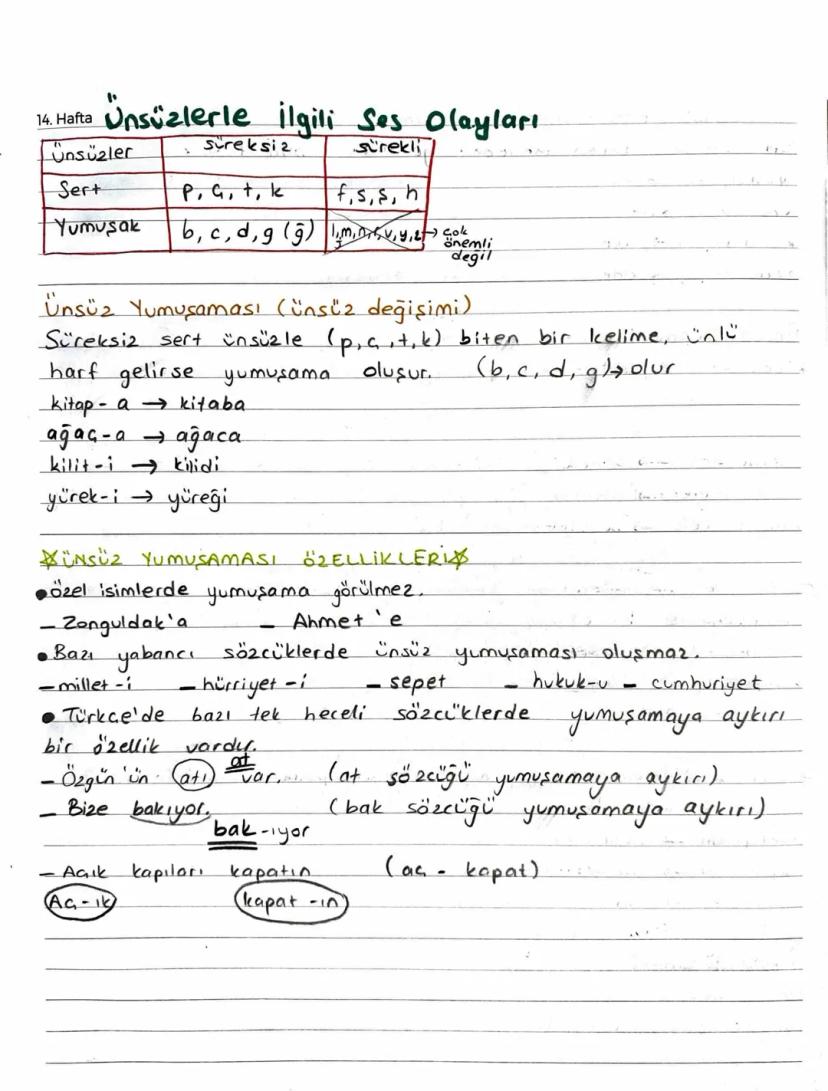 14. Hafta Ünsüzlerle İlgili Ses Olayları
Ünsüzler süreksiz sürekli
Sert p, ç, t, k f, s, ş, h
Yumuşak b, c, d, g (ğ) l, m, n, r, v, y, z → çok
j önemli
değil
Ünsüz Yumuşaması (ünsüz değişimi)
Süreksiz sert ünsüzle (p, ç, t, k) biten bir kelime, ünlü
harf gelirse yumuşama oluşur. (b, c, d, g)→ olur
kitap - a → kitaba
ağaç - a → ağaca
kilit - i → kilidi
yürek - i → yüreği
ÜNSÜZ YUMUŞAMASI ÖZELLİKLERİ
• özel isimlerde yumuşama görülmez.
– Zonguldak'a – Ahmet'e
• Bazı yabancı sözcüklerde ünsüz yumuşaması oluşmaz.
– millet - i – hürriyet - i – sepet – hukuk-u – cumhuriyet
• Türkçe'de bazı tek heceli sözcüklerde yumuşamaya aykırı
bir özellik vardır.
at
– Özgün'ün atı var. (at sözcüğü yumuşamaya aykırı)
– Bize bakıyor. (bak sözcüğü yumuşamaya aykırı)
bak - ıyor
– Açık kapıları kapatın (aç - kapat)
Aç - ık kapat - ın